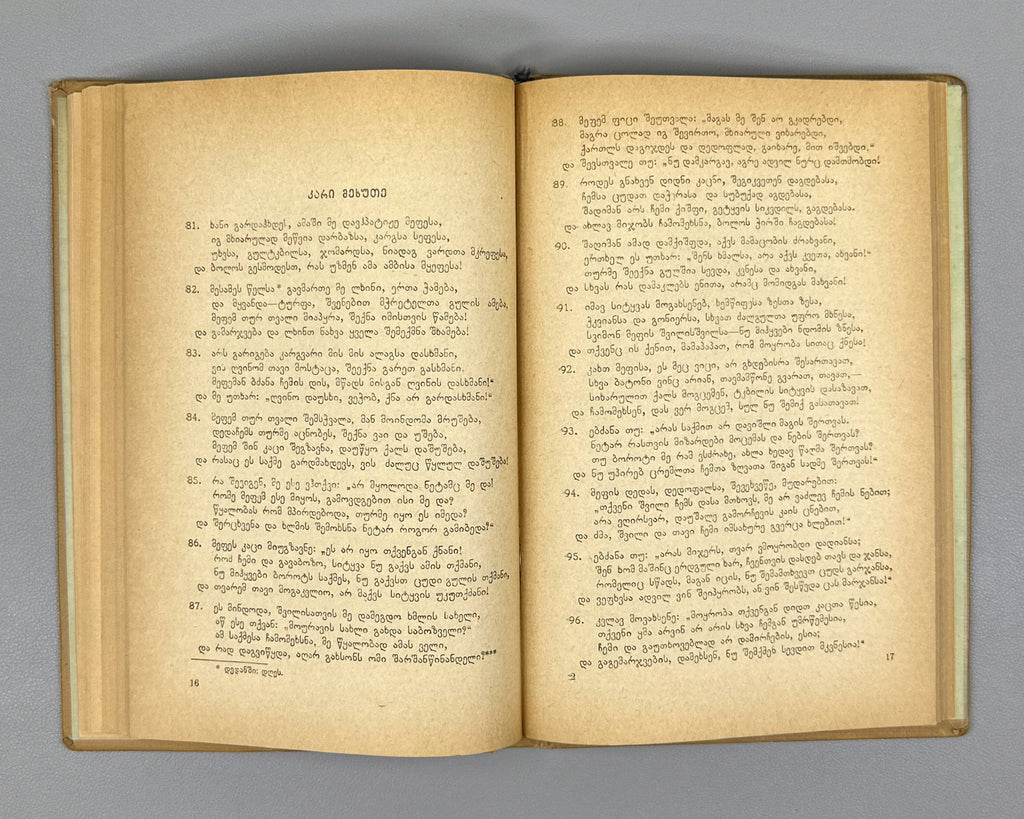 კარი მეხუთე
81. ხანი გარდაჰხდეს, ამაში მე დავჰპატიჟე მეფესა,
იგ მხიარულად მეწვია დარბაზსა, კარგსა სეფესა,
უხვსა, გულტკბილსა, ჯომარდსა, ნიადაგ ვარდთა მკრეფესა,
და ბოლოს გესმოდესთ, რას უზმენ ამა ამბისა მყეფესა!
82. მესამეს წელსა* გავმართე მე ლხინი, ერთა ჭამება,
და მყვანდა—ტურფა, შვენებით მჭრეტელთა გულის ამება,
მეფემ თურ თვალი მიაპყრა, შექნა იმისთვის წამება!
და გამარჯვება და ლხინთ ნახვა ყველა შემექმნა შხამება!
83. არს გარიგება კარგვარი მის მის ალაგსა დასხმანი,
ვის ღვინომ თავი მოსტაცა, შეექნა გარეთ გასხმანი.
მეფემან ბძანა ჩემის დის, მწადს მისგან ღვინის დასხმანი!“
და მე უთხარ: „ღვინო დაუსხი, ვეჰობ, ქნა არ გარდასხმანი!“
84. მეფემ თურ თვალი შემსჭვალა, მან მოინდომა მრუშება,
დედაჩემს თურმე აცნობეს, შექნა ვაი და უშება,
მეფემ შინ კაცი შეგზავნა, დაუწყო ქალს დაშუშება,
და რასაც ეს საქმე გარდმახდევს, ვის ძალუც წყლულ დაშუშება!
85. რა შევიგენ, მე ესე ვჰთქვი: „არ მყოლოდა ნეტამც მე და!
რომე მეფემ ესე მიყოს, გამოვდგებით ისი მე და?
წყალობას რომ მპირდებოდა, თურმე იყო ეს იმედა?
და შერცხვენა და ხლმის შემოხსნა ნეტარ როგორ გამიბედა?“
86. მეფეს კაცი მიუგზავნე: „ეს არ იყო თქვენგან ქნანი!
რომ ჩემი და გავაბოზო, სიტყვა ნუ გაქვს ამის თქმანი,
ნუ მიჰყვები ბოროტს საქმეს, ნუ გაქვსთ ცუდი გულის თქმანი,
და თვარემ თავი მოგაკვლიო, არ მაქვს სიტყვის უკუთქმანი!
87. ეს მინდოდა, შვილისათვის მე დამეგდო ხმლის სახელი,
აწ ესე თქვან: „მოურავის სახლი გახდა საბოზველი?“
ამ საქმესა ჩამომეხსნა, მე წყალობად ამას ველი,
და რად დაგვიწყდა, აღარ გახსონს ომი შარშანწინანდელი?“**
* დედანში: დღეს.
16
88. მეფემ ფიცი შეუთვალა: „მაგას მე შენ არ გკადრებდი,
მაგრა ცოლად იგ შევირთო, მხიარული ვიხარებდი,
ქართლს დაგიჯდეს და დედოფლად, გაიხარე, მით იშვებდი.“
და შევსთვალე თუ: „ნუ დამკარგავ, აგრე ადვილ ნურც დამთმობდი!
89. როდეს გნახვენ დიდნი კაცნი, შეგიკვეთენ დაგდებასა,
ჩემსა ცუდათ დაჭერასა და სუბუქად აგდებასა,
შადიმან არს ჩემი ქიშფი, გეტყვის სიკვდილს, გაგდებასა.
და ახლავ მიჯობს ჩამომეხსნა, ბოლოს ჭირში ჩაგდებასა!
90. შადიმან ამად დამქიშფდა, აქვს მამაცობის ძრახვანი,
ერთხელ ეს უთხარ: „შენს ხმალსა, არა აქვს კვეთა, ახვანი!“
თურმე შეექნა გულშია სევდა, კვნესა და ახვანი,
და სხვას რას დამაკლებს ენითა, არამც მომიდგას მახვანი!
91. იმავ სიტყვას მოგახსენებ, ხემწიფესა ზესთა ზესა,
ჭკვიანსა და გონიერსა, სხვათ ძალგულთა უფრო მხნესა,
სვიმონ მეფის შვილისშვილსა—ნუ მიჰყვები ნდომის ზნესა,
და თქვენც ის ქენით, მამაპაპათ, რომ მოყრობა სითაც ქნესა!
92. კახთ მეფისა, ეს მეც ვიცი, არ გხდებისრა შესართავათ,
სხვა ბატონი ვინც არიან, თავმამწონე გვარათ, თავათ,—
სიხარულით ქალს მოგცემენ, ტკბილის სიტყვის დასაზავათ,
და ჩამომეხსენ, დას ვერ მოგცემ, სულ ნუ შემიქ გასათავათ!
93. ებძანა თუ: „არას საქმით არ დავიშლი მაგის შერთვას.
ნეტარ რასთვის მიზარდები მოცემას და ნების შერთვას?
თუ ბოროტი მე რამ ვსძრახე, ახლა ხედავ წაღმა შერთვას?
და ნუ უპირებ ცრემლთა ჩემთა ზღვათა შიგან სადმე შერთვას!“
94. მეფის დედას, დედოფალსა, შევეხვეწე, მუდარებით:
„თქვენი შვილი ჩემს დასა მთხოვს, მე არ ვაძლევ ჩემის ნებით;
არა ვღირსვარ, დაუშალე გამორჩევის კაის ცნებით,
და ძმა, შვილი და თავი ჩემი იმსახურე გვერცა ხლებით!“
95. ებძანა თუ: „არას მიჯერს, თვარ ვმოყრობდი დადიანსა;
შენ ხომ მაშინც ერდგული ხარ, ჩვენთვის დასდებ თავს და ჯანსა,
რომელიც სწადს, მაგან იცის, ნუ შემამთხვევთ ცუდს გარჯანსა,
და ვეფხვსა ადვილ ვინ შეიპყრობს, ან ვინ შესწვდა ცას მარჯანსა!“
96. კვლავ მოვახსენე: „მოყრობა თქვენგან დიდთ კაცთა წესია,
თქვენი ყმა არვინ არ არის სხვა ჩემგან უმრწემესია,
ჩემი და გაუთხოვებლად არ დამირჩების, ესია;
და გაგემარჯვების, დამეხსენ, ნუ შემქმენ სევდით მკვნესია!“
2
17